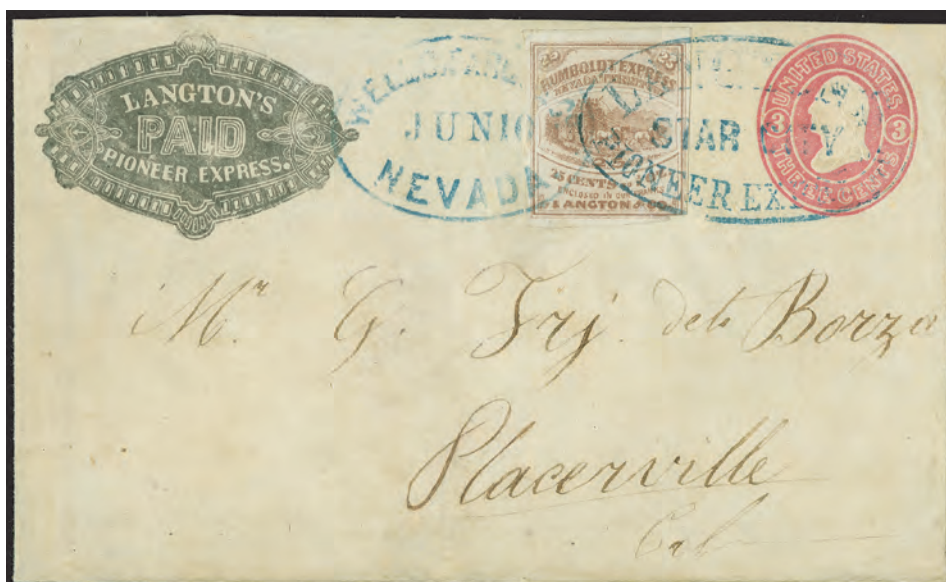 LANGTON'S
PAID
PIONEER EXPRESS.
WELLS, FARGO
JUN 10
NEVADA
25 25
HUMBOLDT EXPRESS
NEVADA TERRITORY
25 CENTS
ENCLOSED IN OUR
LANGTON & CO
STAR CITY
PIONEER EXP
UNITED STATES
3 3
THREE CENTS
Mr. G. Frj. dets Borzo
Placerville
Cal